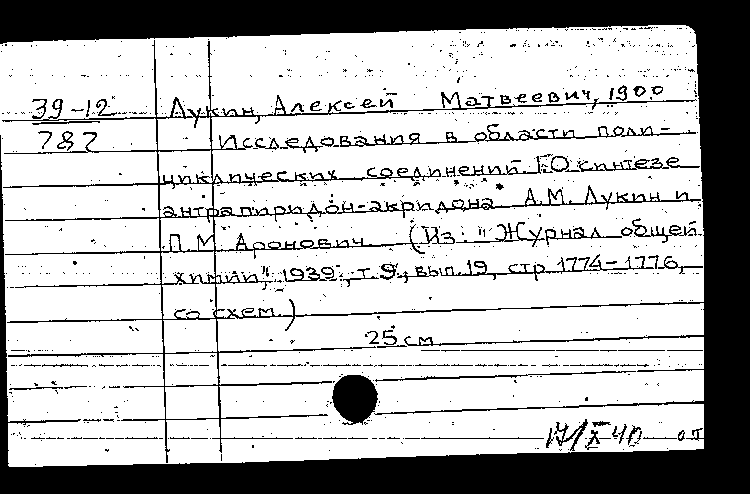 39-12 Лукин, Алексей Матвеевич, 1900
787 Исследования в области поли-
циклических соединений. I. О синтезе
антрапиридон-акридона А.М. Лукин и
П.М. Аронович (Из: "Журнал общей
химии", 1939, т. 9, вып. 19, стр 1774-1776,
со схем.)
25 см
17/X 40 оп